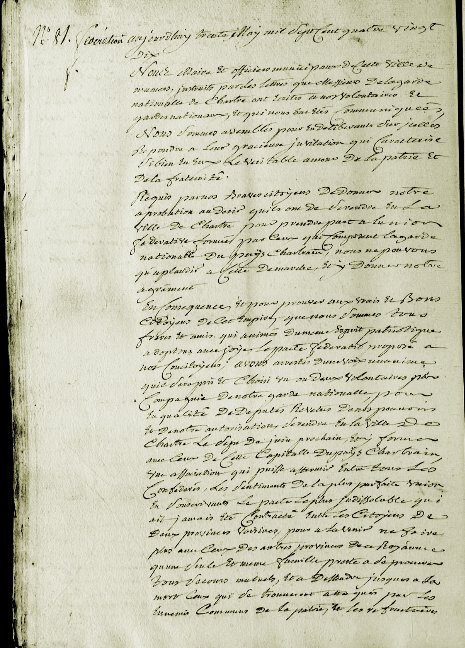 N.° 81. federation aujourdhuy trente May mil sept Cent quatre vingt
dix
Nous Maire et officiers municipaux de Cette ville de
instruits par les lettres que Messieurs De la garde
nationalle de Chartre ont Ecrites a nos volontaires et
gardes nationaux et qui nous ont été Communiqueés,
Nous sommes assemblés pour En deliberant sur jcelles
Repondre a leur gracieuse jnvitation qui Caracterise
si bien En Eux Le veritable amour De la patrie Et
De la fraternité.
Requis par nos Braves citoyens De donner notre
aprobation au Desir qu'ils ont de se rendre En La
ville De Chartre pour prendre part a L'union
federative formée par Ceux qui Composent la garde
nationalle Du pays Chartrain, nous ne pouvons
qu'aplaudir a Cette Demarche, et y Donner notre
agrement
En Consequence, Et pour prouver aux vrais Et Bons
Citoyens de Cet Empire, que nous sommes tous
freres Et amis, qui animés du meme Esprit patriotique
adoptons avec joye Le pacte federatif proposé a
nos Concitoyens, avons arretés d'une voix unanime
qu'il sera pris et Choisi un ou Deux volontaires par
Compagnie De notre garde nationalle pour
En qualité De Deputés Revetus De nos pouvoirs
et De notre autorisation, se rendre En la ville De
Chartre Le sept De juin prochain, Et y former
avec Ceux de Cette Capitalle Du pays Chartrain,
une association qui puisse affermir Entre tous Les
Confederés, Les sentiments De la plus parfaite union
Et Consentir Le pacte Le plus jndissoluble qui
ait jamais Eté Contracté Entre Les Citoyens De
Deux provinces voisines, pour a l'avenir ne faire
plus avec Ceux Des autres provinces De ce Royaume
qu'une seule et meme famille prete a se prouver
tous secours mutuels, Et a Deffendre jusques a la
mort Ceux qui se trouveront attaqués par Les
Ennemis Communs De la patrie, Et Les refractaires